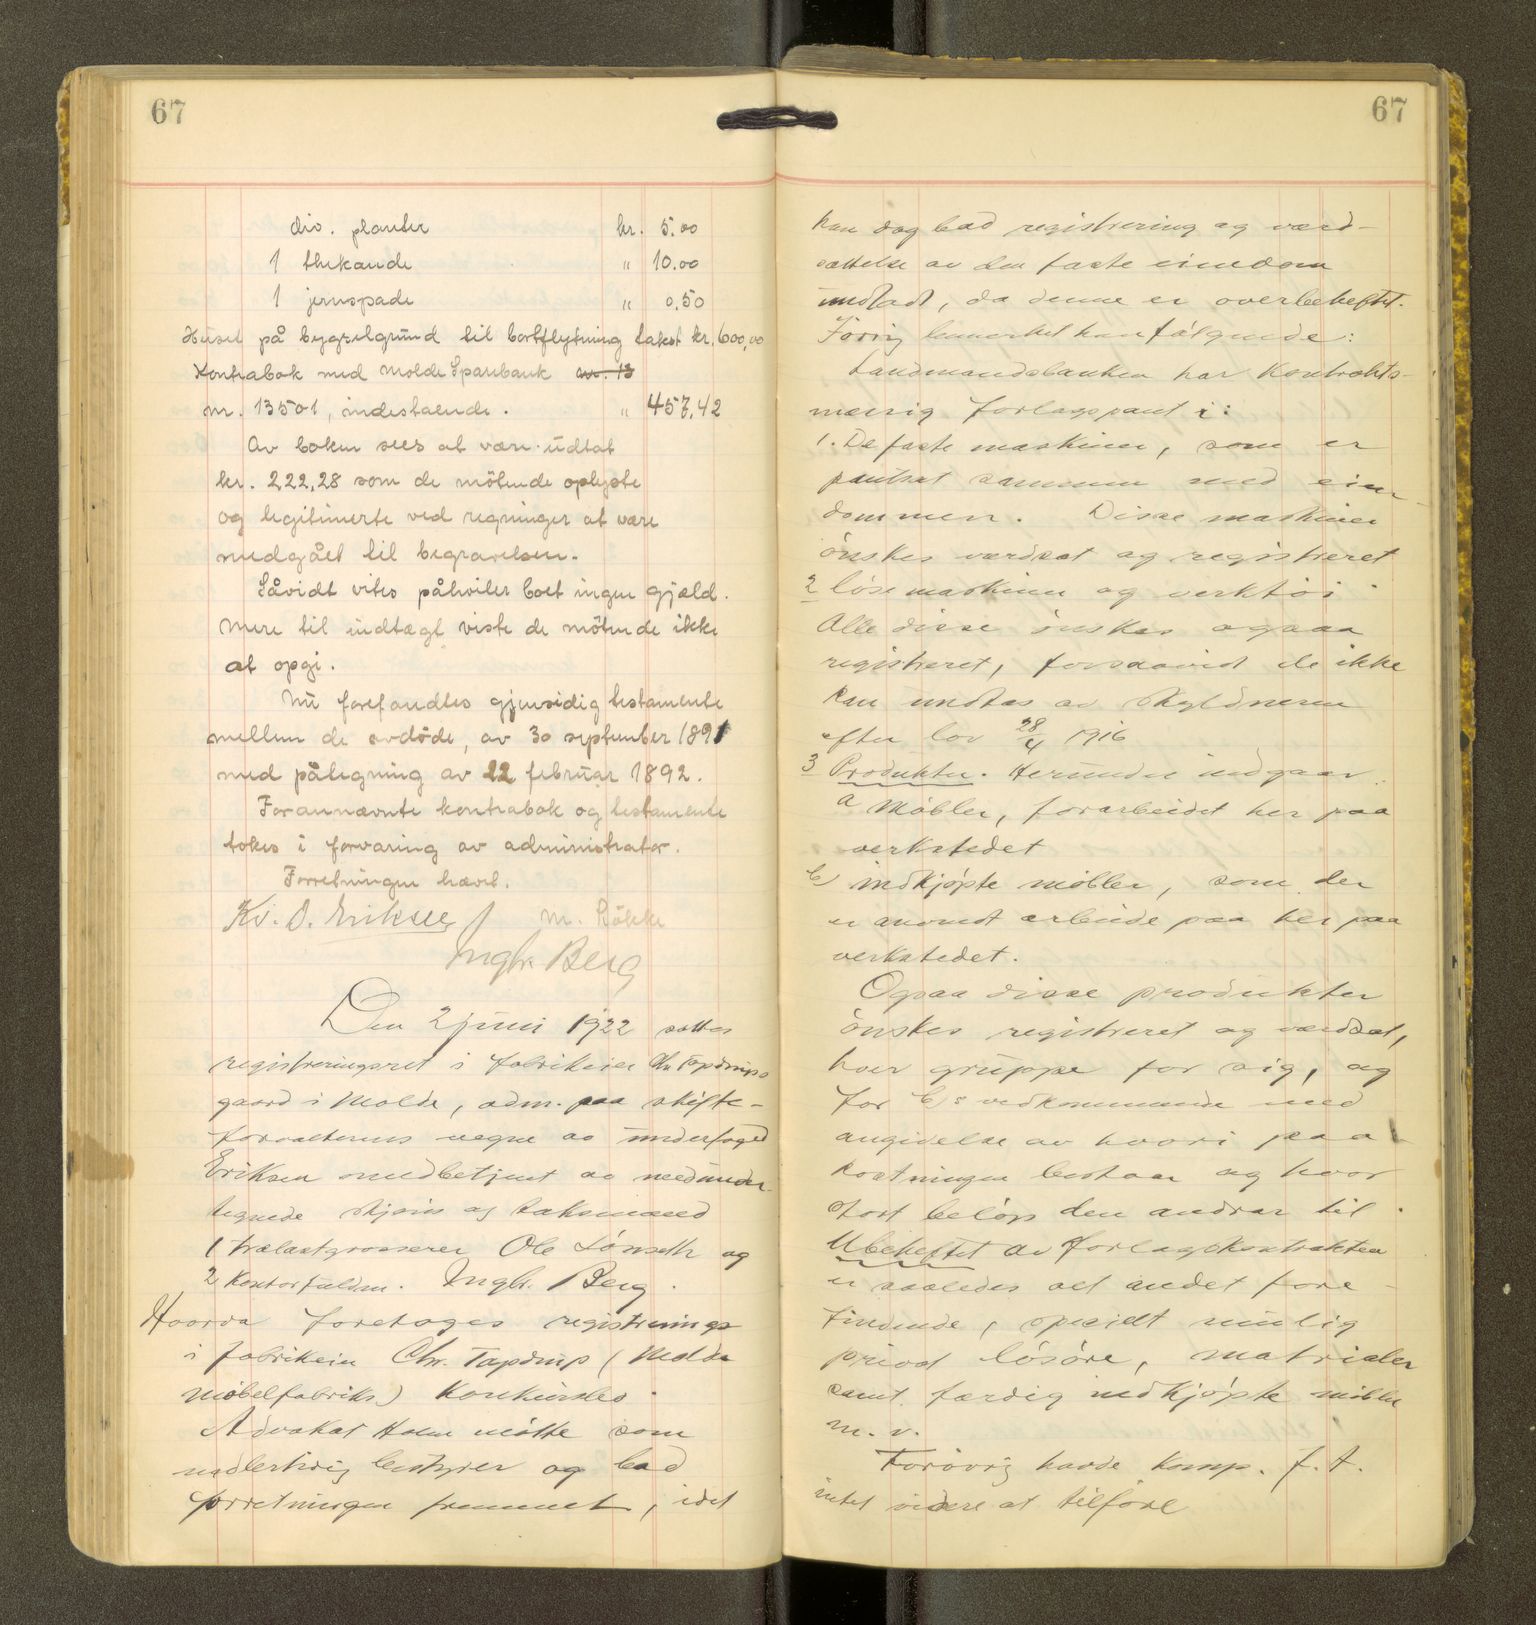 67
div. planter kr. 5.00
1 thekande " 10.00
1 jernspade " 0.50
Huset på bygselgrund til bortflytning takst kr. 600,00
Kontrabok med Molde Sparebank av. 13
nr. 13501, indestaaende. " 457,42
Av boken sees at være udtat
kr. 222,28 som de mötende oplyste
og legitimerte ved regninger at være
medgået til begravelsen.
Såvidt vites påhviler boet ingen gjæld.
Mere til indtægt viste de mötende ikke
at opgi.
Nu forefandtes gjensidig testamente
mellem de avdöde, av 30 september 1891
med påtegning av 22 februar 1892.
Forannævnte kontrabok og testamente
tokes i forvaring av administrator.
Forretningen hævet.
Kr. O. Eriksen M. Lökke
Ingbr. Berg
Den 2 juni 1922 sattes
registreringsret i fabrikeier Chr Tapdrups
gaard i Molde, adm. paa skifte-
forvalterens vegne av underfoged
Eriksen omedbetjent av medunder
tegnede skjöns og taksmænd
1 trælastgrosserer Ole Lönseth og
2 Kontorfuldm. Ingbr. Berg.
Hvorda foretoges registrerings
i fabrikeier Chr. Tapdrup (Molde
møbelfabriks) Konkursbo.
Advokat Holm mötte som
midlertidig bestyrer og bad
forretningen fremmet, idet
67
han dog bad registrering og værd-
sættelse av den faste eiendom
undladt, da denne er overbeheftet.
Forövrig bemerket han fölgende:
Landmandsbanken har Kontrakts-
mæssig forlagspant i:
1. De faste maskiner, som er
pantsat sammen med eien-
dommen. Disse maskiner
önskes værdsat og registreret
2 löse maskiner og verktöi.
Alle disse önskes ogsaa
registreret, forsaavidt de ikke
kan undtas av skyldneren
efter lov 28/4 1916
3 Produkter. Herunder indgaar.
a Møbler, forarbeidet her paa
verkstedet
b) indkjøpte møbler, som der
er anvendt arbeide paa her paa
verkstedet.
Ogsaa disse produkter
önskes registreret og værdsat,
hver gruppe for sig, og
for b's vedkommende med
angivelse av hvori paa
kostningen bestaar og hvor
stort beløp den andrar til.
Ubeheftet av forlagskontrakten
er saaledes alt andet fore-
findende, specielt nemlig
privat lösöre, matrialer
samt færdig indkjøpte møbler
m. v.
Forövrig havde komp. f. t.
intet videre at tilföre